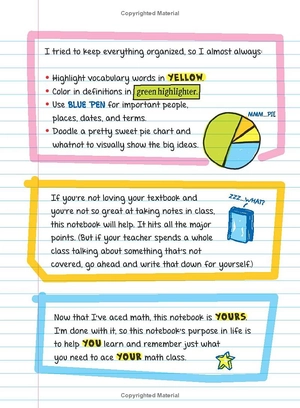 Copyrighted Material
I tried to keep everything organized, so I almost always:
• Highlight vocabulary words in YELLOW.
• Color in definitions in green highlighter.
• Use BLUE PEN for important people,
places, dates, and terms.
• Doodle a pretty sweet pie chart and
whatnot to visually show the big ideas.
MMM...PIE
If you're not loving your textbook and
you're not so great at taking notes in class,
this notebook will help. It hits all the major
points. (But if your teacher spends a whole
class talking about something that's not
covered, go ahead and write that down for yourself.)
ZZZ...WHAT?
Now that I've aced math, this notebook is YOURS.
I'm done with it, so this notebook's purpose in life is
to help YOU learn and remember just what
you need to ace YOUR math class.
Copyrighted Material